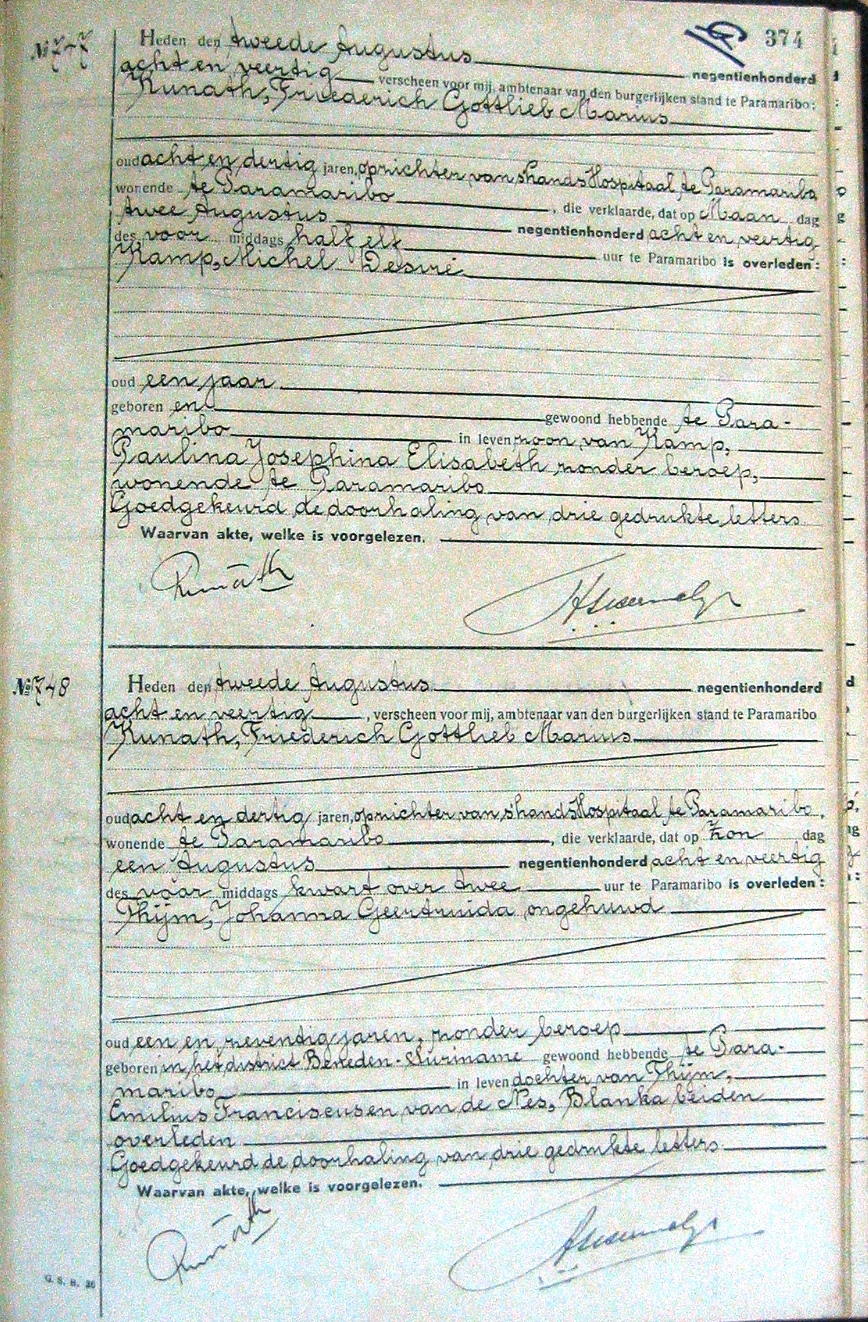 374
No 747 Heden den tweede Augustus negentienhonderd
acht en veertig verscheen voor mij, ambtenaar van den burgerlijken stand te Paramaribo:
Kunath, Friederich Gottlieb Marius
oud acht en dertig jaren, opzichter van 's hands Hospitaal te Paramaribo
wonende te Paramaribo, die verklaarde, dat op Maan dag
twee Augustus negentienhonderd acht en veertig
des voor middags half elf uur te Paramaribo is overleden:
Kamp, Michel Desiré
oud een jaar
geboren en gewoond hebbende te Para-
maribo in leven zoon van Kamp,
Paulina Josephina Elisabeth zonder beroep,
wonende te Paramaribo
Goedgekeurd de doorhaling van drie gedrukte letters
Waarvan akte, welke is voorgelezen.
Kunath
No 748 Heden den tweede Augustus negentienhonderd
acht en veertig, verscheen voor mij, ambtenaar van den burgerlijken stand te Paramaribo
Kunath, Friederich Gottlieb Marius
oud acht en dertig jaren, opzichter van 's hands Hospitaal te Paramaribo,
wonende te Paramaribo, die verklaarde, dat op Zon dag
een Augustus negentienhonderd acht en veertig
des voor middags kwart over twee uur te Paramaribo is overleden:
Thijm, Johanna Geertruida ongehuwd
oud een en zeventig jaren, zonder beroep
geboren in het district Beneden-Suriname gewoond hebbende te Para-
maribo in leven dochter van Thijm,
Emilius Franciscus en van de Nes, Blanka beiden
overleden
Goedgekeurd de doorhaling van drie gedrukte letters
Waarvan akte, welke is voorgelezen.
Kunath
G. S. B. 36